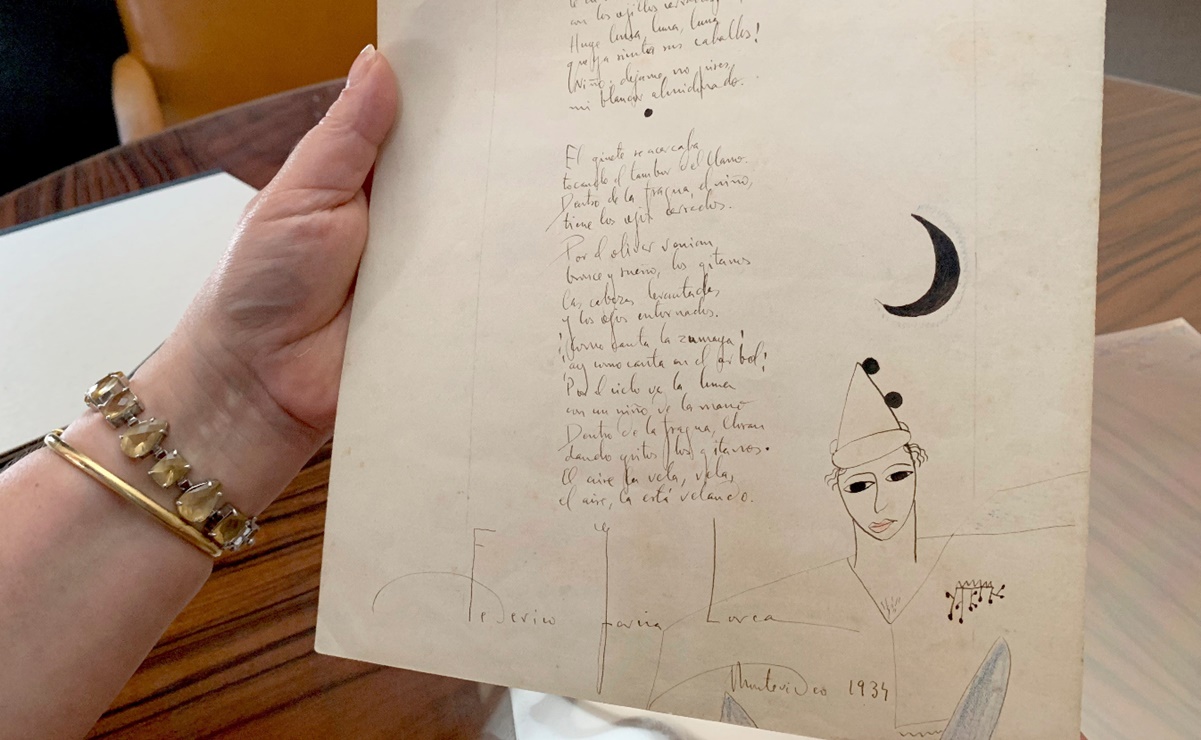 con los ojillos cerrados.
Huye luna, luna, luna
que ya siento sus caballos!
Niño, dejame no pises,
mi blancor almidonado.
El ginete se acercaba
tocando el tambor del llano.
Dentro de la fragua, el niño,
tiene los ojos cerrados.
Por el olivar venian,
bronce y sueño, los gitanos
las cabezas levantadas
y los ojos entornados.
¡Como canta la zumaya!
¡ay como canta en el arbol!
Por el cielo va la luna
con un niño de la mano
Dentro de la fragua, lloran
dando gritos los gitanos.
El aire la vela, vela,
el aire, la está velando.
Federico Garcia Lorca
Montevideo 1934